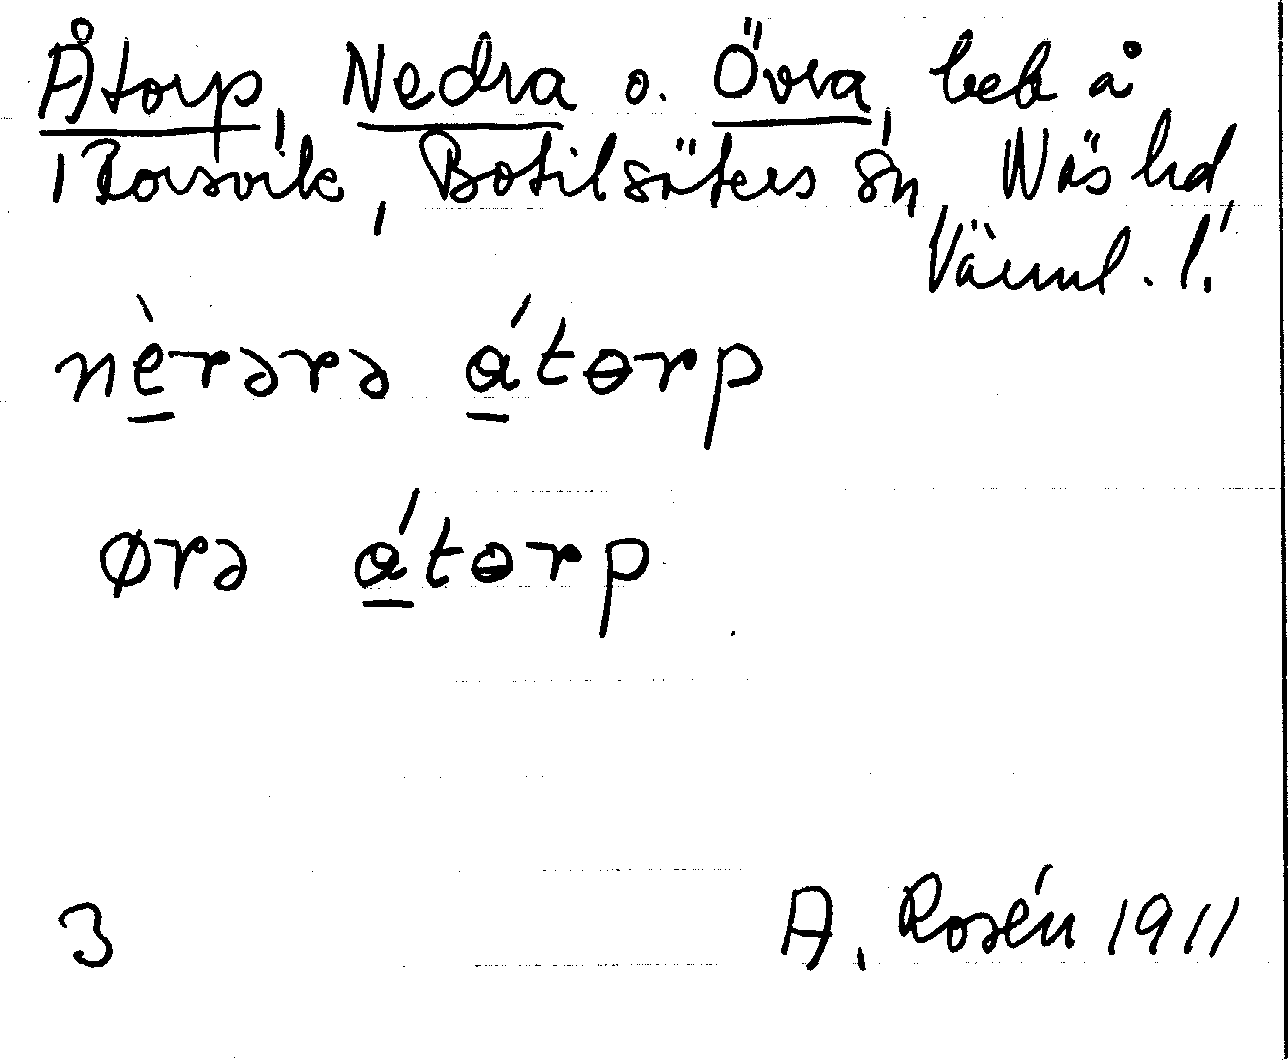 Åtorp, Nedra o. Övra, beb å
1 Borsvik, Botilsäters sn, Näs hd,
Värml. l.
nèrərə átɵrp
ørə átɵrp
3 A. Rosén 1911